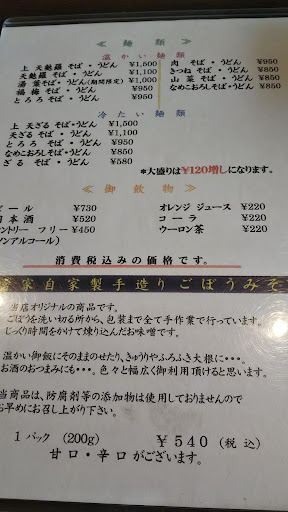 ≪ 麺類 ≫
温かい麺類
上 天麩羅 そば・うどん ¥1,500
天麩羅 そば・うどん ¥1,100
湯葉そば・うどん(期間限定) ¥1,000
福梅 そば・うどん ¥950
とろろ そば・うどん ¥950
肉 そば・うどん ¥950
きつね そば・うどん ¥850
山菜 そば・うどん ¥850
なめこおろしそば・うどん ¥850
冷たい麺類
上 天ざる そば・うどん ¥1,500
天ざる そば・うどん ¥1,100
とろろ そば・うどん ¥950
なめこおろし そば・うどん ¥850
ざる そば・うどん ¥580
*大盛りは¥120増しになります。
≪ 御飲物 ≫
ビール ¥730
日本酒 ¥520
ントリー フリー ¥450
ンアルコール)
オレンジ ジュース ¥220
コーラ ¥220
ウーロン茶 ¥220
消費税込みの価格です。
家自家製手造り ごぼうみそ
当店オリジナルの商品です。
ごぼうを洗い切る所から、包装まで全て手作業で行っています。
じっくり時間をかけて煉り込んだお味噌です。
温かい御飯にそのままのせたり、きゅうりやふろふき大根に・・・。
お酒のおつまみにも・・・。色々と幅広く御利用頂けると思います。
当商品は、防腐剤等の添加物は使用しておりませんので
お早めにお召し上がり下さい。
1パック (200g) ¥540 (税込)
甘口・辛口がございます。